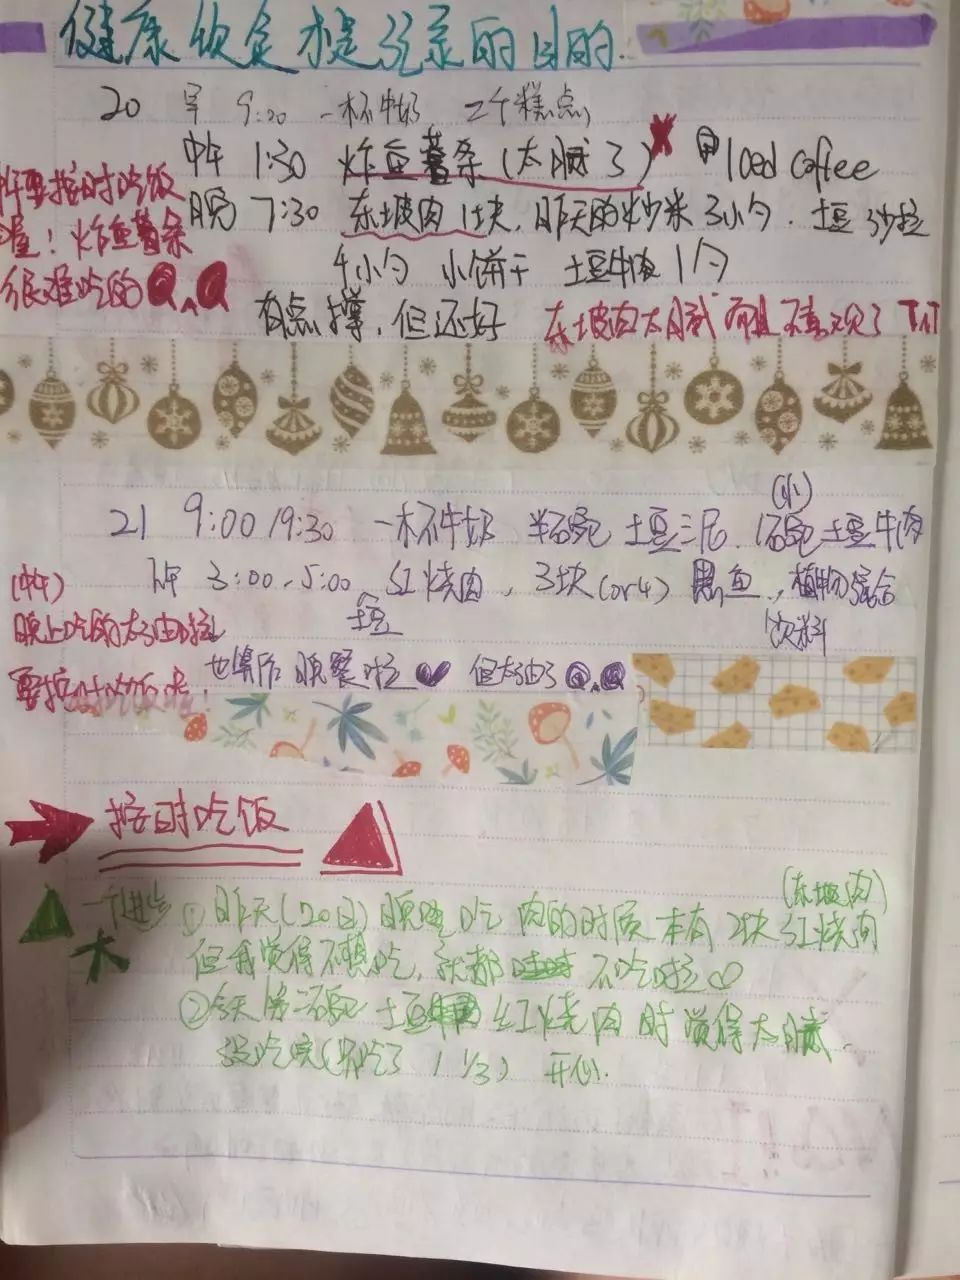 健康饮食才是记录的目的.
20 早 9:20 一杯牛奶 二个糕点
中午 1:30 炸鱼薯条(太腻了) 中 Iced coffee
晚 7:30 东坡肉1块,昨天的炒米3小勺.土豆沙拉
4小勺 小饼干 土豆牛肉1勺
有点撑,但还好
中午要按时吃饭
喔!炸鱼薯条
很难吃的
东坡肉太腻而且不喜欢了 TAT
21 9:00/9:30 一杯牛奶 半碗 土豆泥.1碗(小)土豆牛肉
下午 3:00-5:00 土豆红烧肉,3块(or4)黑鱼,植物混合
饮料
也算后晚餐啦 但太油了
(中午)
晚上吃的太油啦
要按时吃饭
按时吃饭
一个进步
①昨天(20日)晚 吃 肉的时候 本有 2块红烧肉(东坡肉)
但我觉得不想吃,就都 不吃啦
②今天第二碗 土豆 红烧肉时觉得太腻
没吃完(只吃了 1 1/3) 开心.